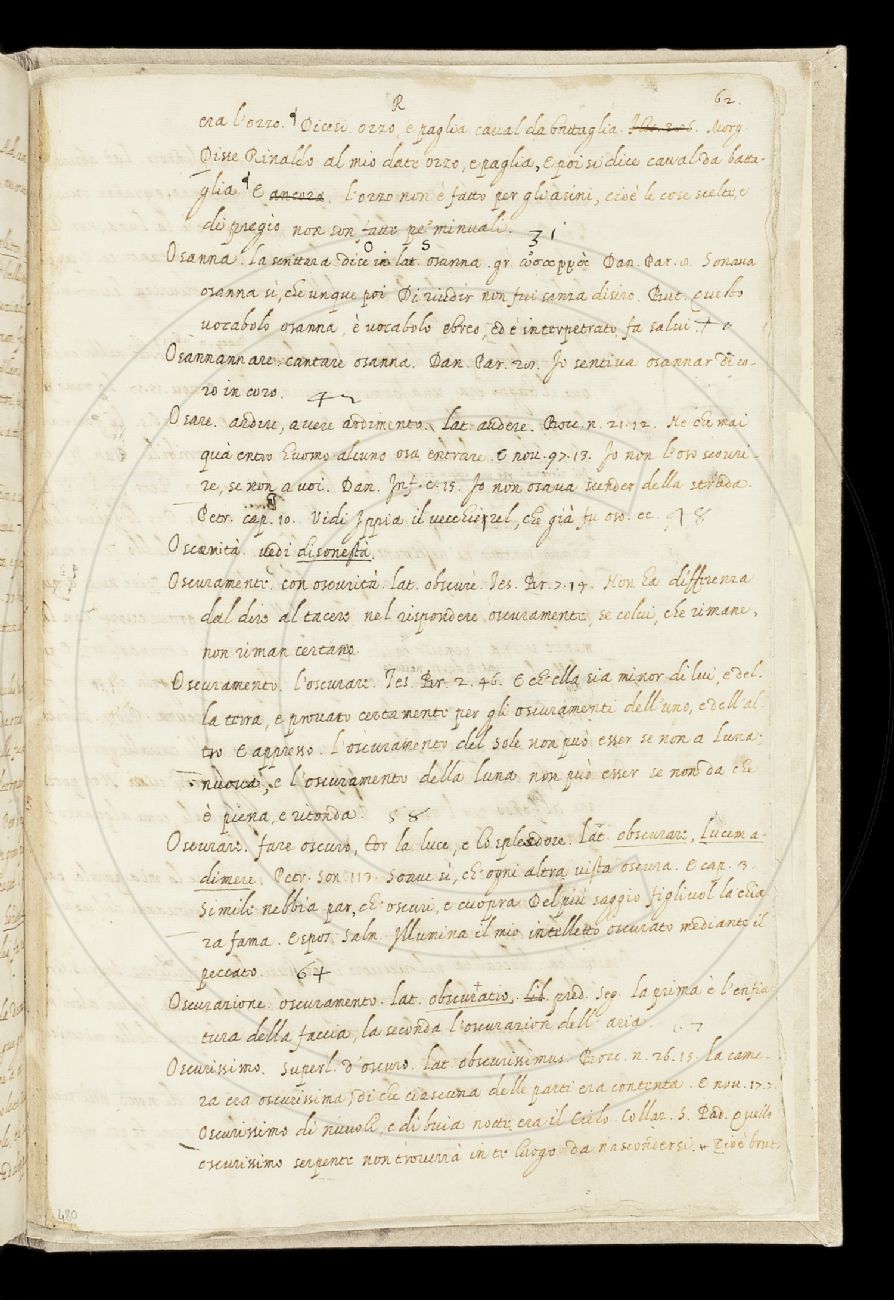 R 62.
era l'orzo. Dicesi orzo, e paglia caval da battaglia. Morg.
Disse Rinaldo al mio date orzo, e paglia, E poi si dice caval da batta-
glia E ancora. l'orzo non è fatto per gli asini, cioè le cose scelte, e
di pregio non son fatte pe' minuali. 31
Osanna. la scrittura dice in lat. osanna. gr. Dan. Par. 8. Sonava
osanna sì, che unque poi Di riudir non fui sanza disiro. But. Questo
vocabolo osanna, è vocabolo ebreo, ed è interpetrato, fa salvi
Osannannare. cantare osanna. Dan. Par. 28. Io sentiva osannar di co-
ro in coro. 42
Osare. ardire, avere ardimento. lat. audere. Bocc. n. 21. 12. Ne che mai
quà entro huomo alcuno osa entrare. E nov. 97. 13. Io non l'oso scovri-
re, se non a voi. Dan. Inf. c. 15. Io non osava scender della strada.
Petr. cap. 10. Vidi Ippia il vecchierel, che già fu oso. ec. 98
Oscenità. vedi disonestà.
Oscuramente. con oscurità. lat. obscure. Tes. Br. 7. 17. Non ha differenza
dal dire al tacere nel rispondere oscuramente, se colui, che rimane,
non riman certano.
Oscuramento. l'oscurare. Tes. Br. 2. 46. E ch'ella sia minor di lui, e del-
la terra, e provato certamente per gli oscuramenti dell'uno, e dell'al-
tro E appresso. l'oscuramento del sole non può esser se non a luna
nuova, e l'oscuramento della luna non può esser se non da che
è piena, e ritonda. 58
Oscurare. fare oscuro, tor la luce, e lo splendore. lat. obscurare, lucem a-
dimere. Petr. Son. 113. Soave sì, ch'ogni altra vista oscura. E cap. 3.
Simile nebbia par, ch'oscuri, e cuopra Del più saggio figliuol la chia
ra fama. Espos. Salm. Illumina il mio intelletto oscurato mediante il
peccato. 64
Oscurazione. oscuramento. lat. obscuratio. Lib. pred. Seg. la prima è l'enfia
tura della faccia, la seconda l'oscurazion dell'aria. 67
Oscurissimo. Superl. d'oscuro. lat. obscurissimus. Bocc. n. 26. 15. la came-
ra era oscurissima, di che ciascuna delle parti era contenta. E nov. 17. 7.
Oscurissimo di nuvoli, e di buia notte era il Cielo. Collaz. S. Pad. Quello
oscurissimo serpente non troverrà in te luogo da nascondersi. Cioè brut
480